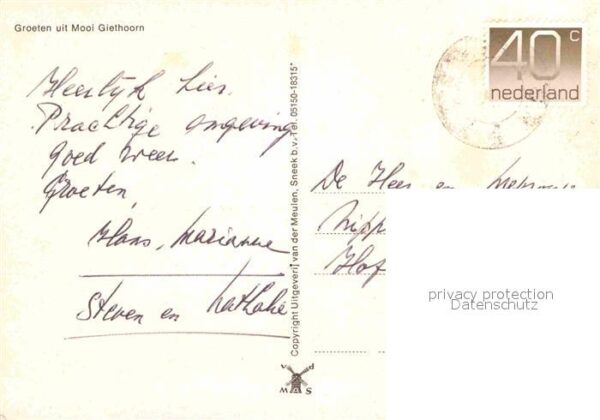 Groeten uit Mooi Giethoorn
40 c
nederland
Heerlijk hier.
Prachtige omgeving
goed weer.
Groeten,
Hans, Marianne
Steven en Nathalie
Copyright Uitgeverij van der Meulen, Sneek b.v. Tel. 05150-18315*
De Heer en Mevrouw
Hof
privacy protection
Datenschutz
v d
M W S